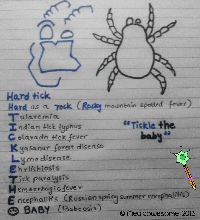 Hard tick
Hard as a rock (Rocky mountain spotted fever)
Tularemia
Indian tick typhus
Colorado tick fever
Kyasanur forest disease
Lyme disease
Ehrlichiosis
Tick paralysis
Hemorrhagic fever
Encephalitis (Russian spring summer encephalitis)
BABY (Babesia)
"Tickle the
baby"
© medicowesome 2013